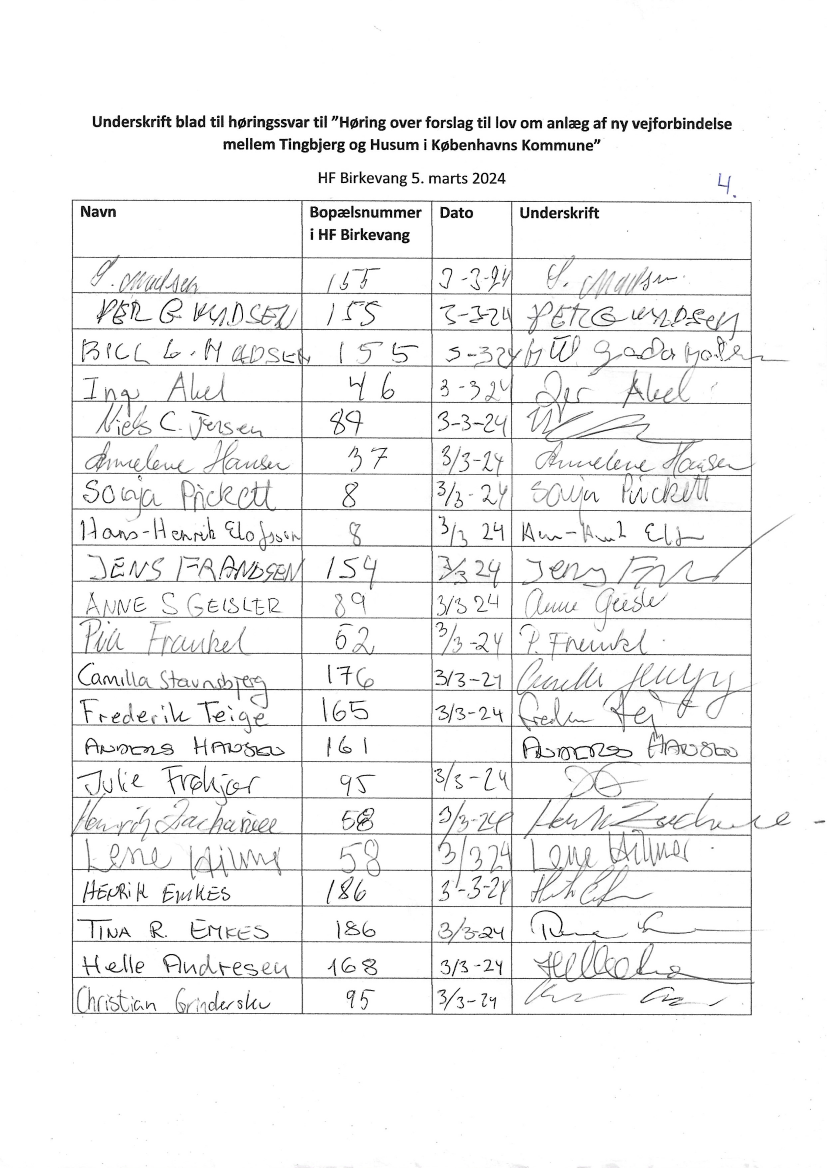 Underskrift blad til høringssvar til ”Høring over forslag til lov om anlæg af ny vejforbindelse
mellem Tingbjerg og Husum i Københavns Kommune”
HF Birkevang 5. marts 2024
4.
Navn Bopælsnummer i HF Birkevang Dato Underskrift
S. Madsen 155 3-3-24 S. Madsen
PER G KNDSEN 155 3-3-24 PER G KNDSEN
BILL G. MADSEN 155 3-324
Inga Abel 46 3-324 Abel
Niels C. Jensen 89 3-3-24
Annelene Hansen 37 3/3-24 Annelene Hansen
Sonja Prickett 8 3/3-24 Sonja Prickett
Hans-Henrik Elofsson 8 3/3 24
JENS FRANDSEN 154 3/3 24 Jens
ANNE S GEISLER 89 3/3 24 Anne Geisler
Pia Frankel 62 3/3-24 P. Frenkel
Camilla Stavnsbjerg 176 3/3-21 Camilla
Frederik Teige 165 3/3-24
ANDERS HANSEN 161 ANDERS HANSEN
Julie Frøkjær 95 3/3-24
Henrik Zachariae 58 3/3-24
Lene Hilmer 58 3/324 Lene Hilmer
HENRIK EMKES 186 3-3-24
TINA R. EMKES 186 3/3-24
Helle Andresen 168 3/3-24
Christian Grinderslev 95 3/3-24